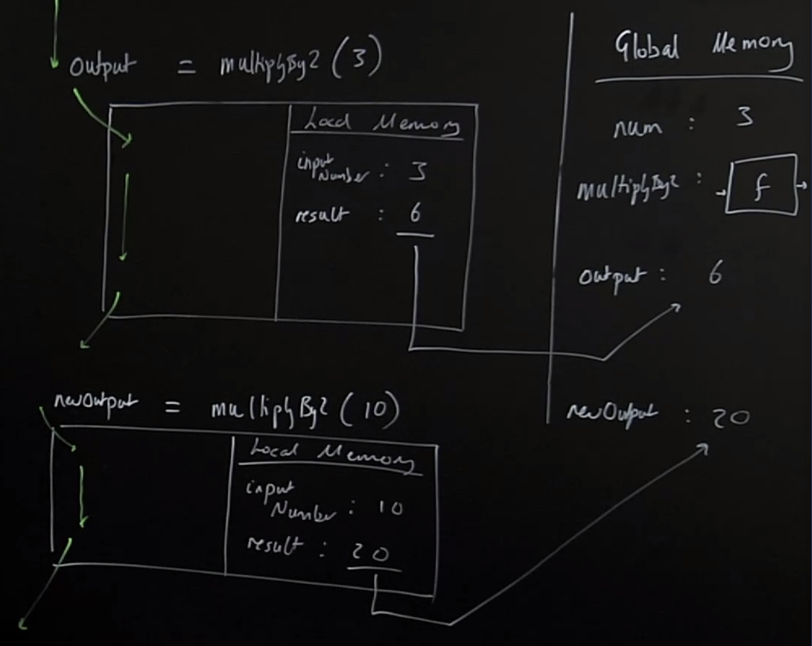 output = multiplyBy2 (3)
Local Memory
input Number : 3
result : 6
newOutput = multiplyBy2 (10)
Local Memory
input Number : 10
result : 20
Global Memory
num : 3
multiplyBy2 : f
output : 6
newOutput : 20